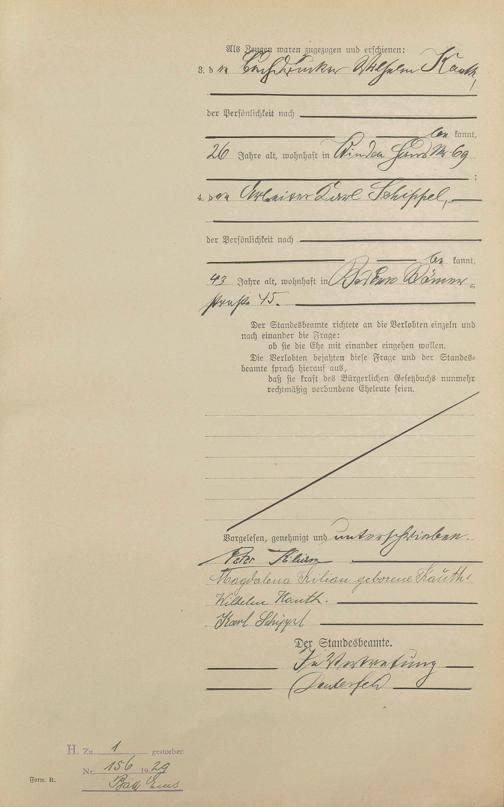 Als Zeugen waren zugezogen und erschienen:
3. der Buchdrucker Wilhelm Kauth,
der Persönlichkeit nach
be kannt,
26 Jahre alt, wohnhaft in Winden Haus Nr 69
;
4. der Arbeiter Karl Schippel,
der Persönlichkeit nach
be kannt,
43 Jahre alt, wohnhaft in Bad Ems Römer-
straße 45.
Der Standesbeamte richtete an die Verlobten einzeln und
nach einander die Frage:
ob sie die Ehe mit einander eingehen wollen.
Die Verlobten bejahten diese Frage und der Standes-
beamte sprach hierauf aus,
daß sie kraft des Bürgerlichen Gesetzbuchs nunmehr
rechtmäßig verbundene Eheleute seien.
Vorgelesen, genehmigt und unterschrieben.
Peter Kilian
Magdalena Kilian geborene Kauth.
Wilhelm Kauth.
Karl Schippel
Der Standesbeamte.
In Vertretung
H. Zu 1 gestorben
Nr. 156 1929
Bad Ems
Form. B.